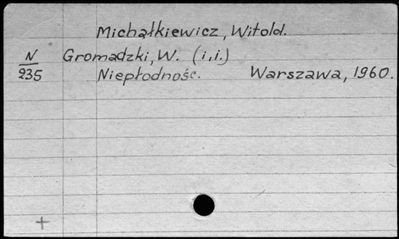 Michałkiewicz, Witold.
N Gromadzki, W. (i,i.)
235 Niepłodność. Warszawa, 1960.
+